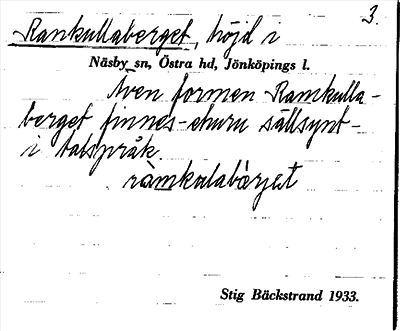 3.
Rankullaberget, höjd i
Näsby sn, Östra hd, Jönköpings l.
Även formen Ramkulla-
berget finnes - ehuru sällsynt -
i talspråk.
ràmkulabæ̀rjet
Stig Bäckstrand 1933.